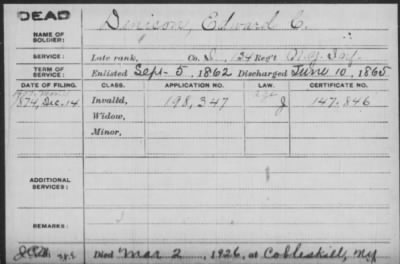 DEAD
NAME OF SOLDIER: Denison, Edward C.
SERVICE: Late rank, Co. 134 Reg't N.Y. Inf.
TERM OF SERVICE: Enlisted Sept. 5, 1862 Discharged June 10, 1865
DATE OF FILING. CLASS. APPLICATION NO. LAW. CERTIFICATE NO.
1874, Dec. 14 Invalid, 198,347 J 147.846
Widow,
Minor,
ADDITIONAL SERVICES:
REMARKS:
Died Mar 2, 1926, at Cobleskill, NY